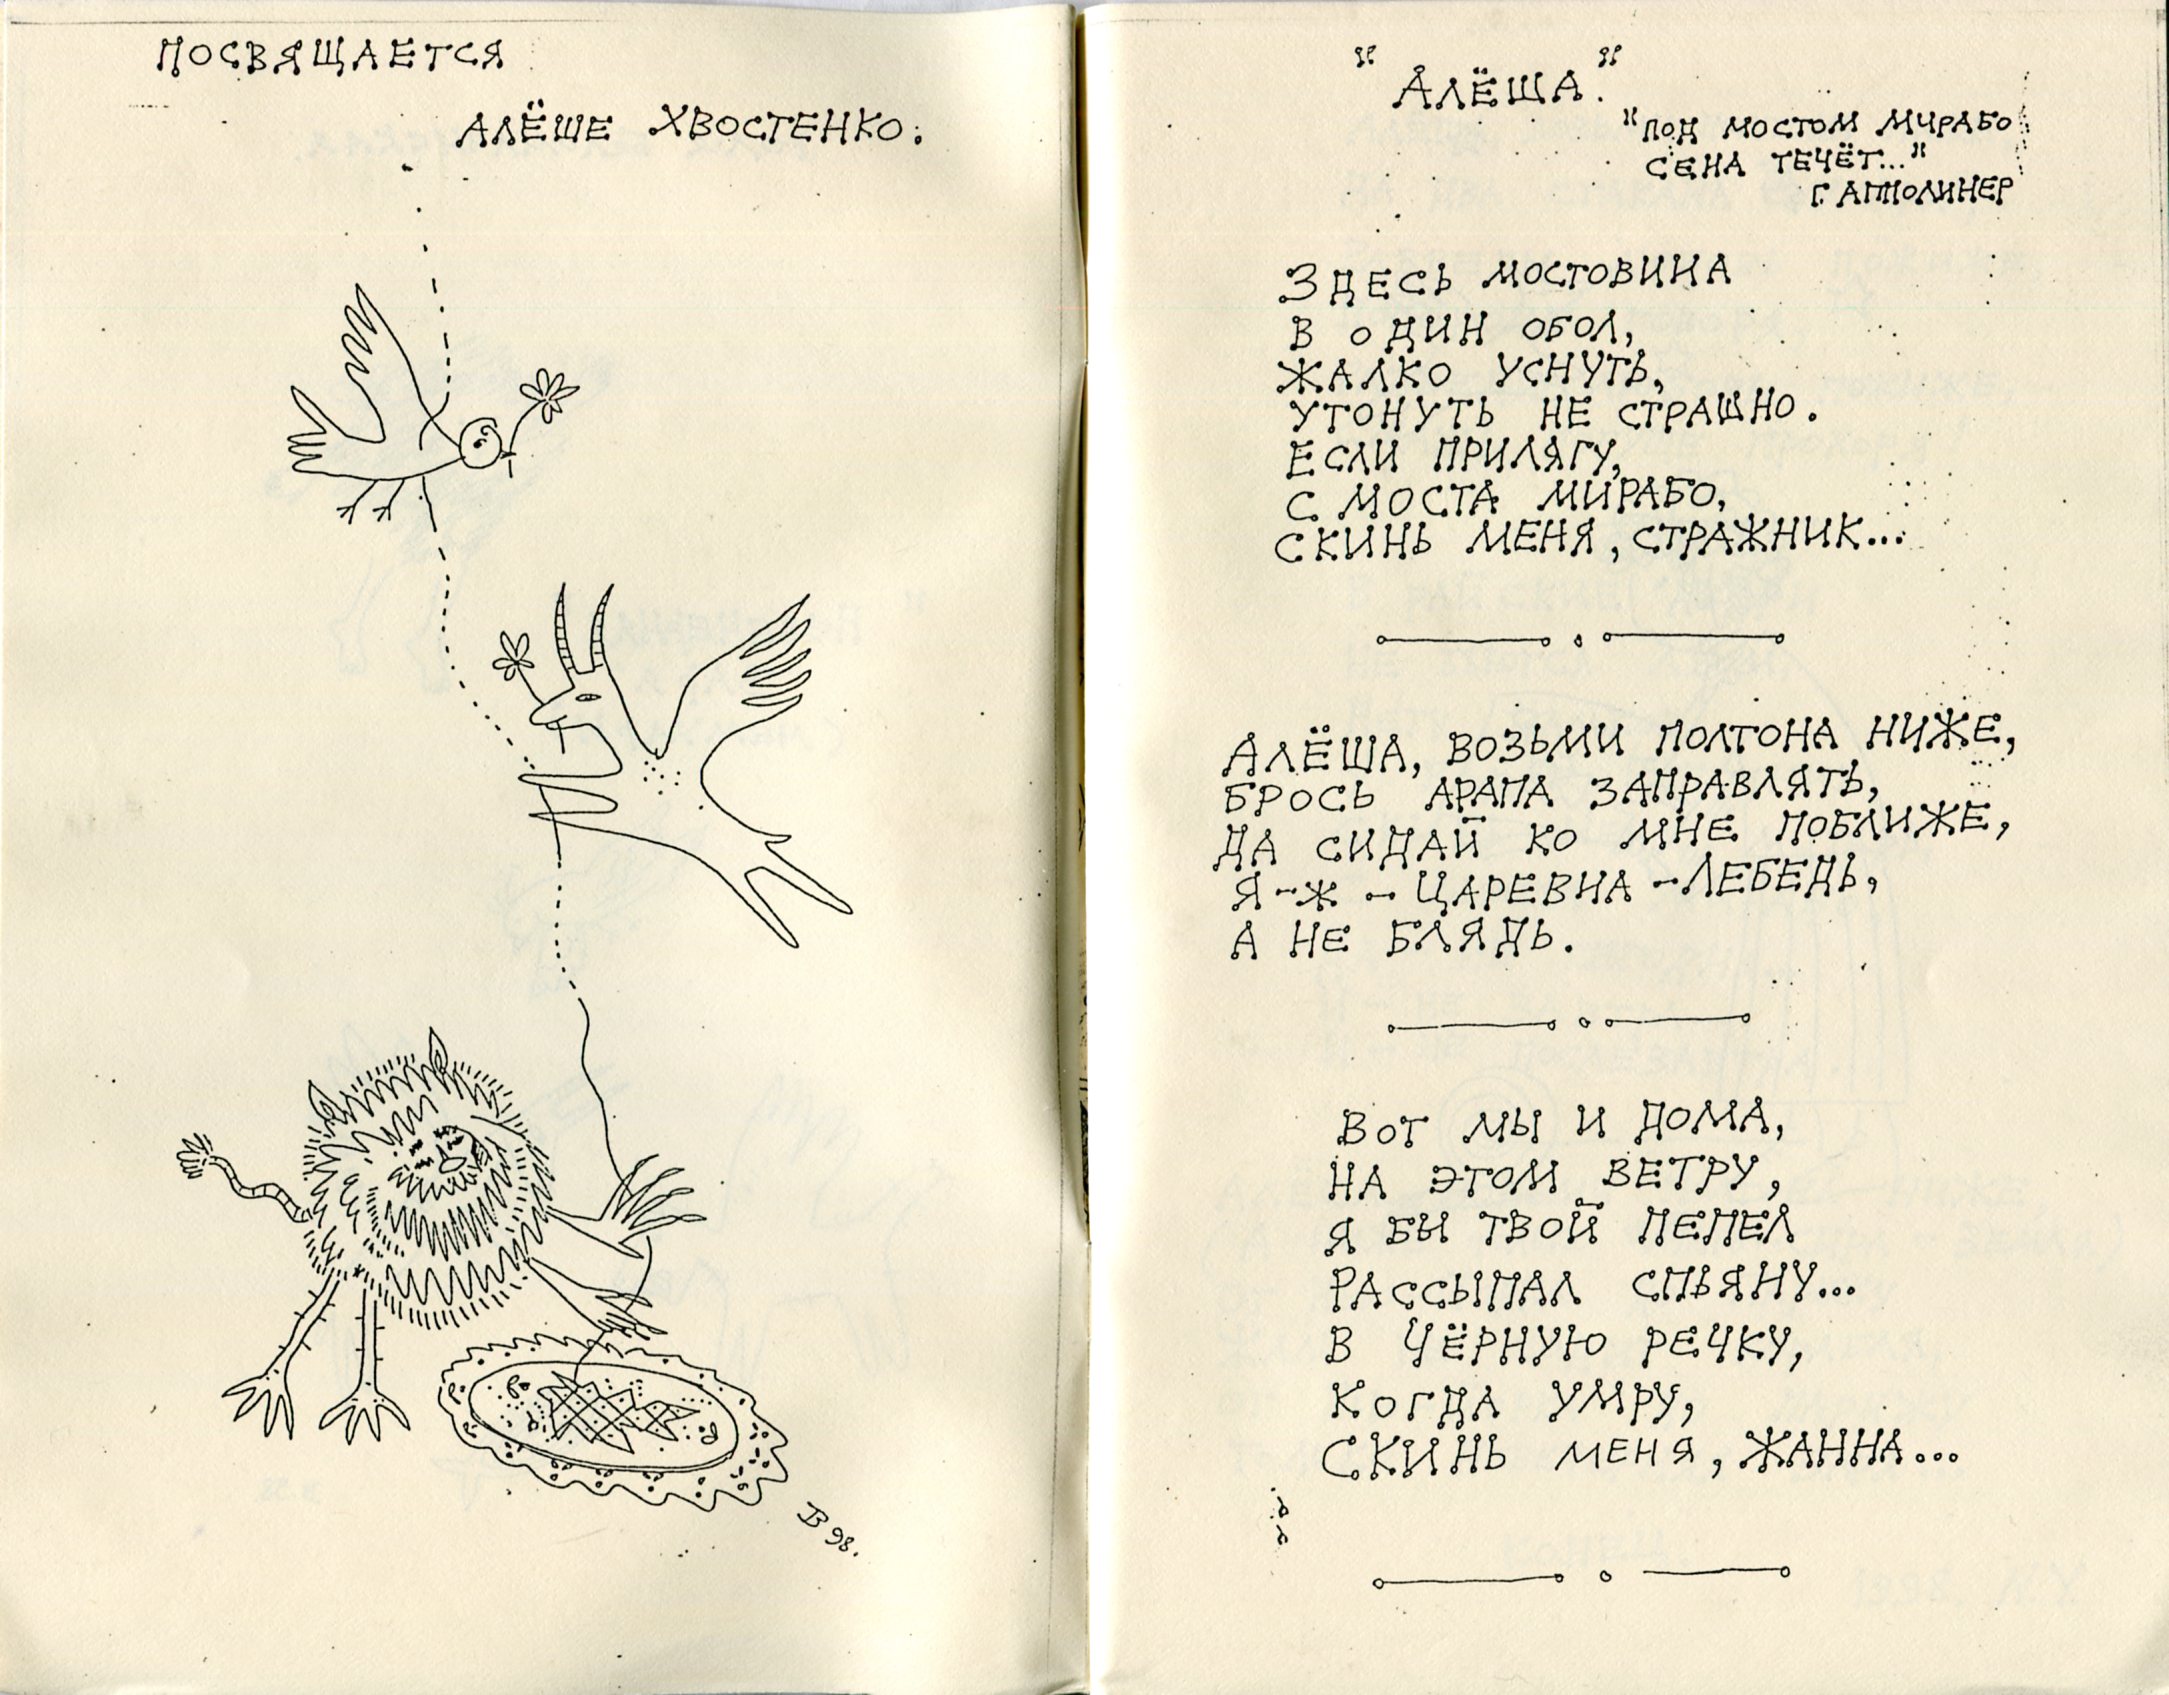 ПОСВЯЩАЕТСЯ
АЛЁШЕ ХВОСТЕНКО.
В 98.
"АЛЁША."
"ПОД МОСТОМ МИРАБО
СЕНА ТЕЧЁТ..."
Г. АППОЛИНЕР
ЗДЕСЬ МОСТОВИНА
В ОДИН ОБОЛ,
ЖАЛКО УСНУТЬ,
УТОНУТЬ НЕ СТРАШНО.
ЕСЛИ ПРИЛЯГУ,
С МОСТА МИРАБО,
СКИНЬ МЕНЯ, СТРАЖНИК...
АЛЁША, ВОЗЬМИ ПОЛТОНА НИЖЕ,
БРОСЬ АРАПА ЗАПРАВЛЯТЬ,
ДА СИДАЙ КО МНЕ ПОБЛИЖЕ,
Я-Ж - ЦАРЕВНА - ЛЕБЕДЬ,
А НЕ БЛЯДЬ.
ВОТ МЫ И ДОМА,
НА ЭТОМ ВЕТРУ,
Я БЫ ТВОЙ ПЕПЕЛ
РАССЫПАЛ СПЬЯНУ...
В ЧЁРНУЮ РЕЧКУ,
КОГДА УМРУ,
СКИНЬ МЕНЯ, ЖАННА...